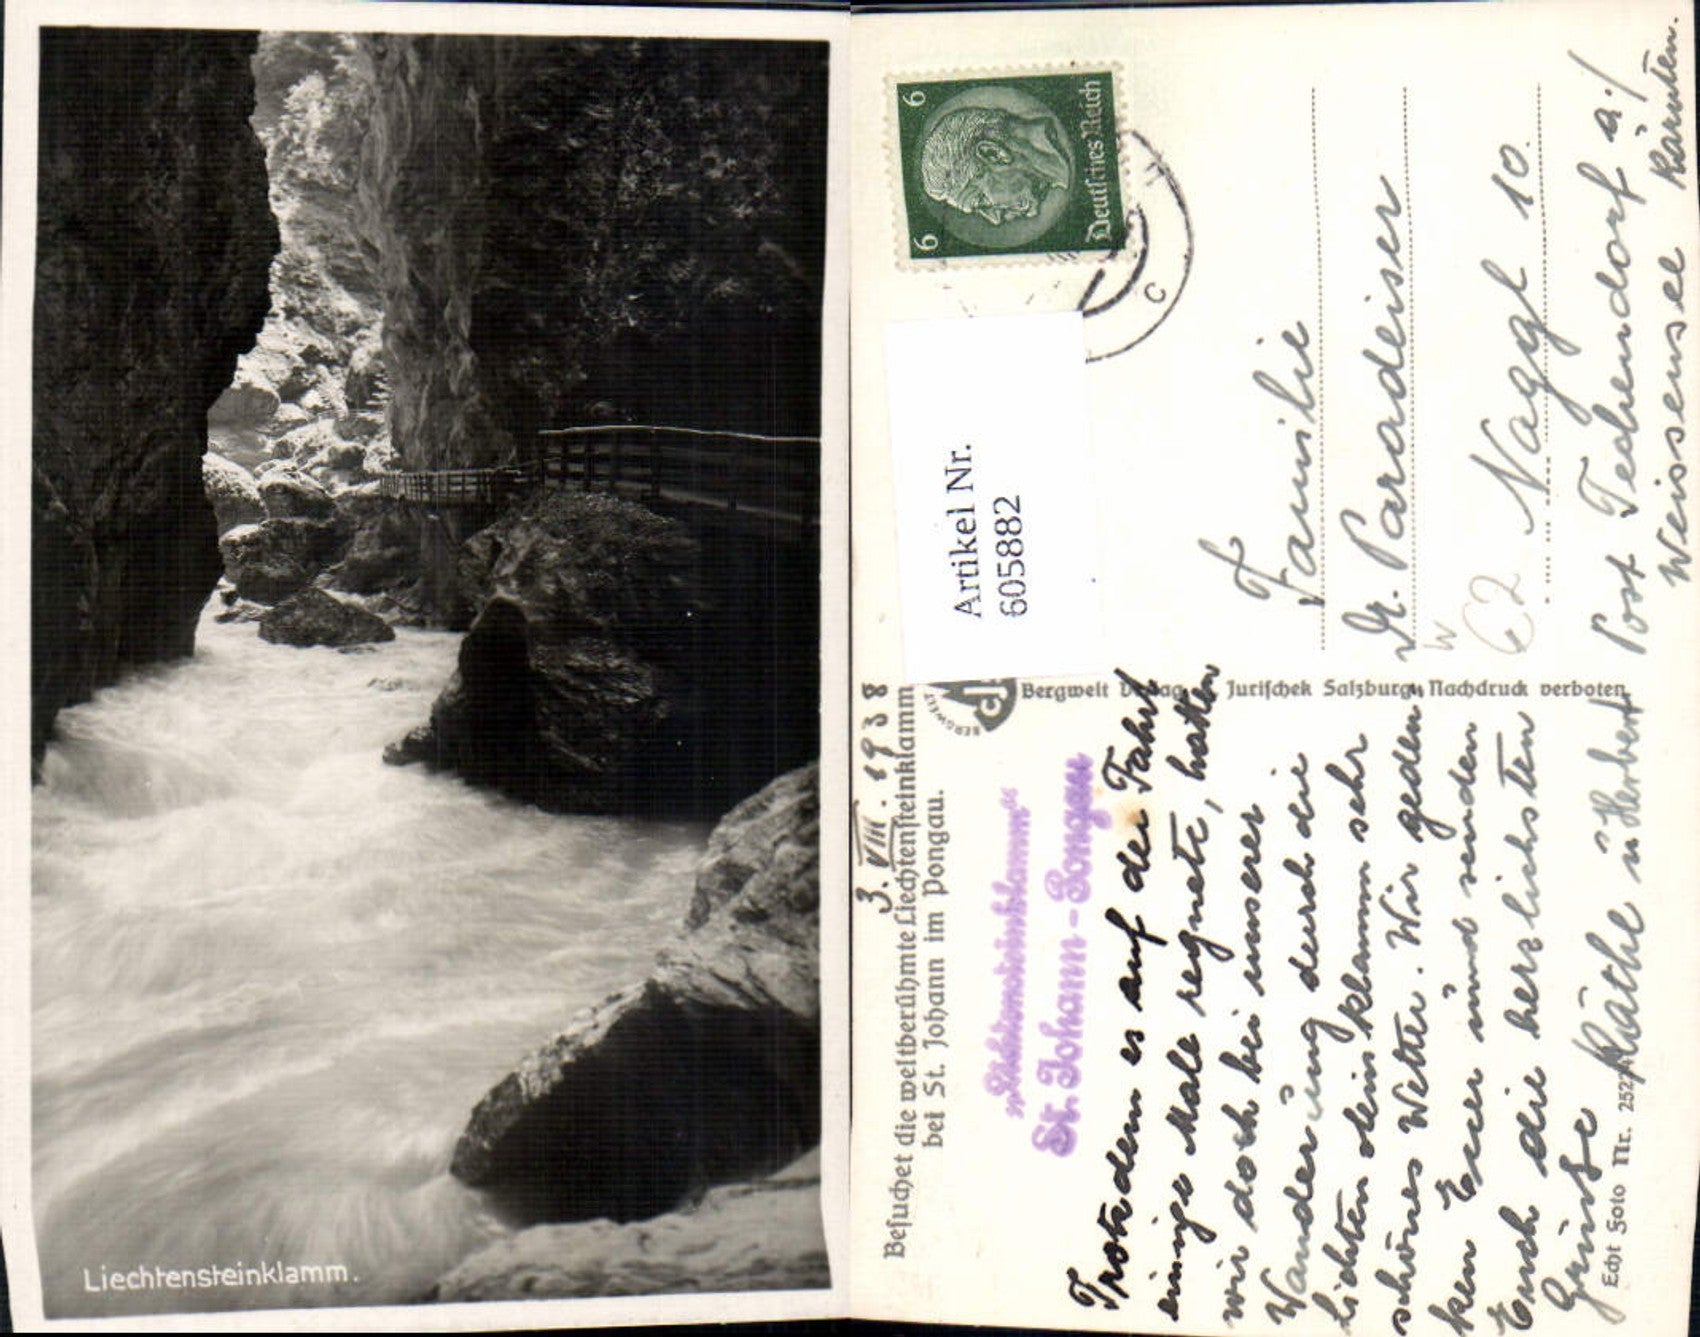 Liechtensteinklamm.
6
6
Deutsches Reich
C
Artikel Nr.
605882
Familie
Dr. Paradeiser
62 Naggl 10.
Post Techendorf a./
Weissensee Kärnten.
BERGWELT
Bergwelt Jurischek Salzburg, Nachdruck verboten
3. VIII. 1938
Besuchet die weltberühmte Liechtensteinklamm
bei St. Johann im Pongau.
„Liechtensteinklamm“
St. Johann-Pongau
Trotzdem es auf der Fahrt
einige Male regnete, hatten
wir doch bei unserer
Wanderung durch die
Lichtensteinklamm sehr
schönes Wetter. Wir geden
ken Euer und senden
Euch die herzlichsten
Grüsse Käthe u Herbert
Echt Foto Nr. 252